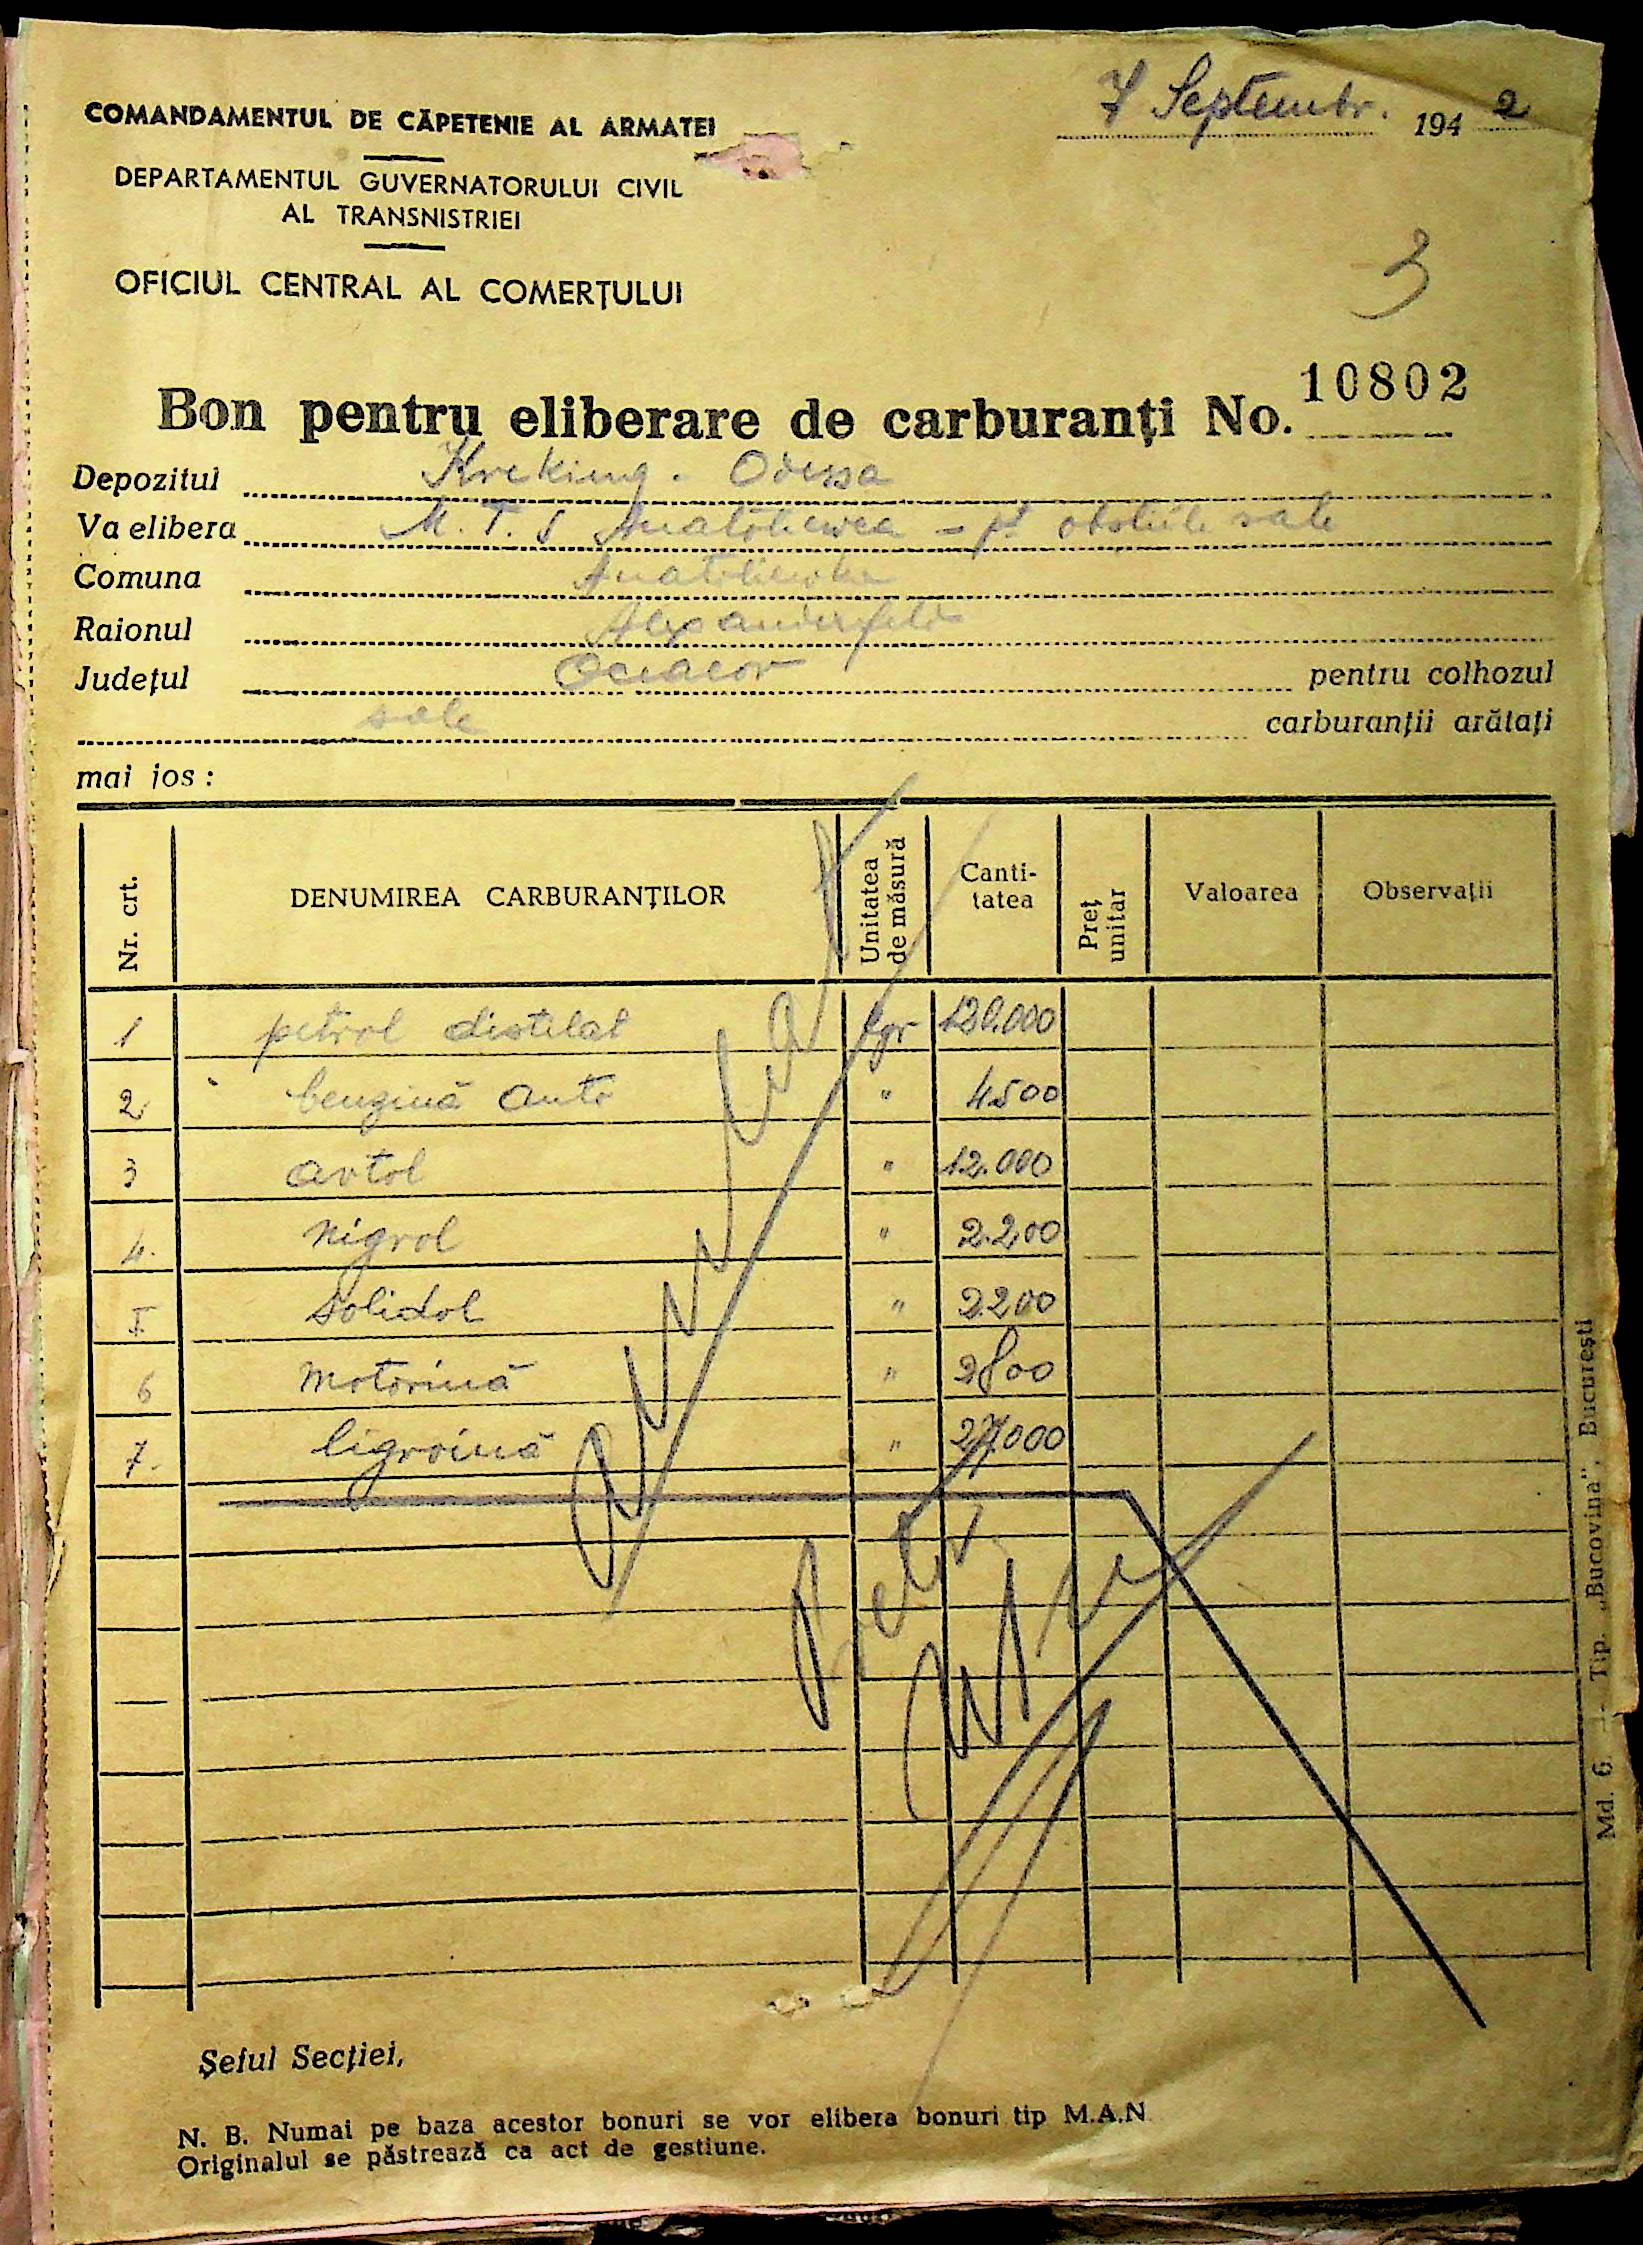 7 Septembr. 1942
COMANDAMENTUL DE CĂPETENIE AL ARMATEI
DEPARTAMENTUL GUVERNATORULUI CIVIL
AL TRANSNISTRIEI
OFICIUL CENTRAL AL COMERȚULUI
3
Bon pentru eliberare de carburanți No. 10802
Depozitul Kreking - Odessa
Va elibera M. T. S Anatoliewca - pt obstiile sale
Comuna Anatoliewka
Raionul Alexanderfeld
Județul Oceacov pentru colhozul
sale carburanții arătați
mai jos :
Nr. crt. DENUMIREA CARBURANȚILOR Unitatea de măsură Canti-tatea Preț unitar Valoarea Observații
1 petrol distilat kgr 130.000
2 benzină auto " 4500
3 avtol " 12.000
4. nigrol " 2.200
5 solidol " 2200
6 motorină " 2800
7. ligroină " 27.000
Anulat
Șeful Secției,
N. B. Numai pe baza acestor bonuri se vor elibera bonuri tip M.A.N
Originalul se păstrează ca act de gestiune.
Md. 6. — Tip. „Bucovina", București